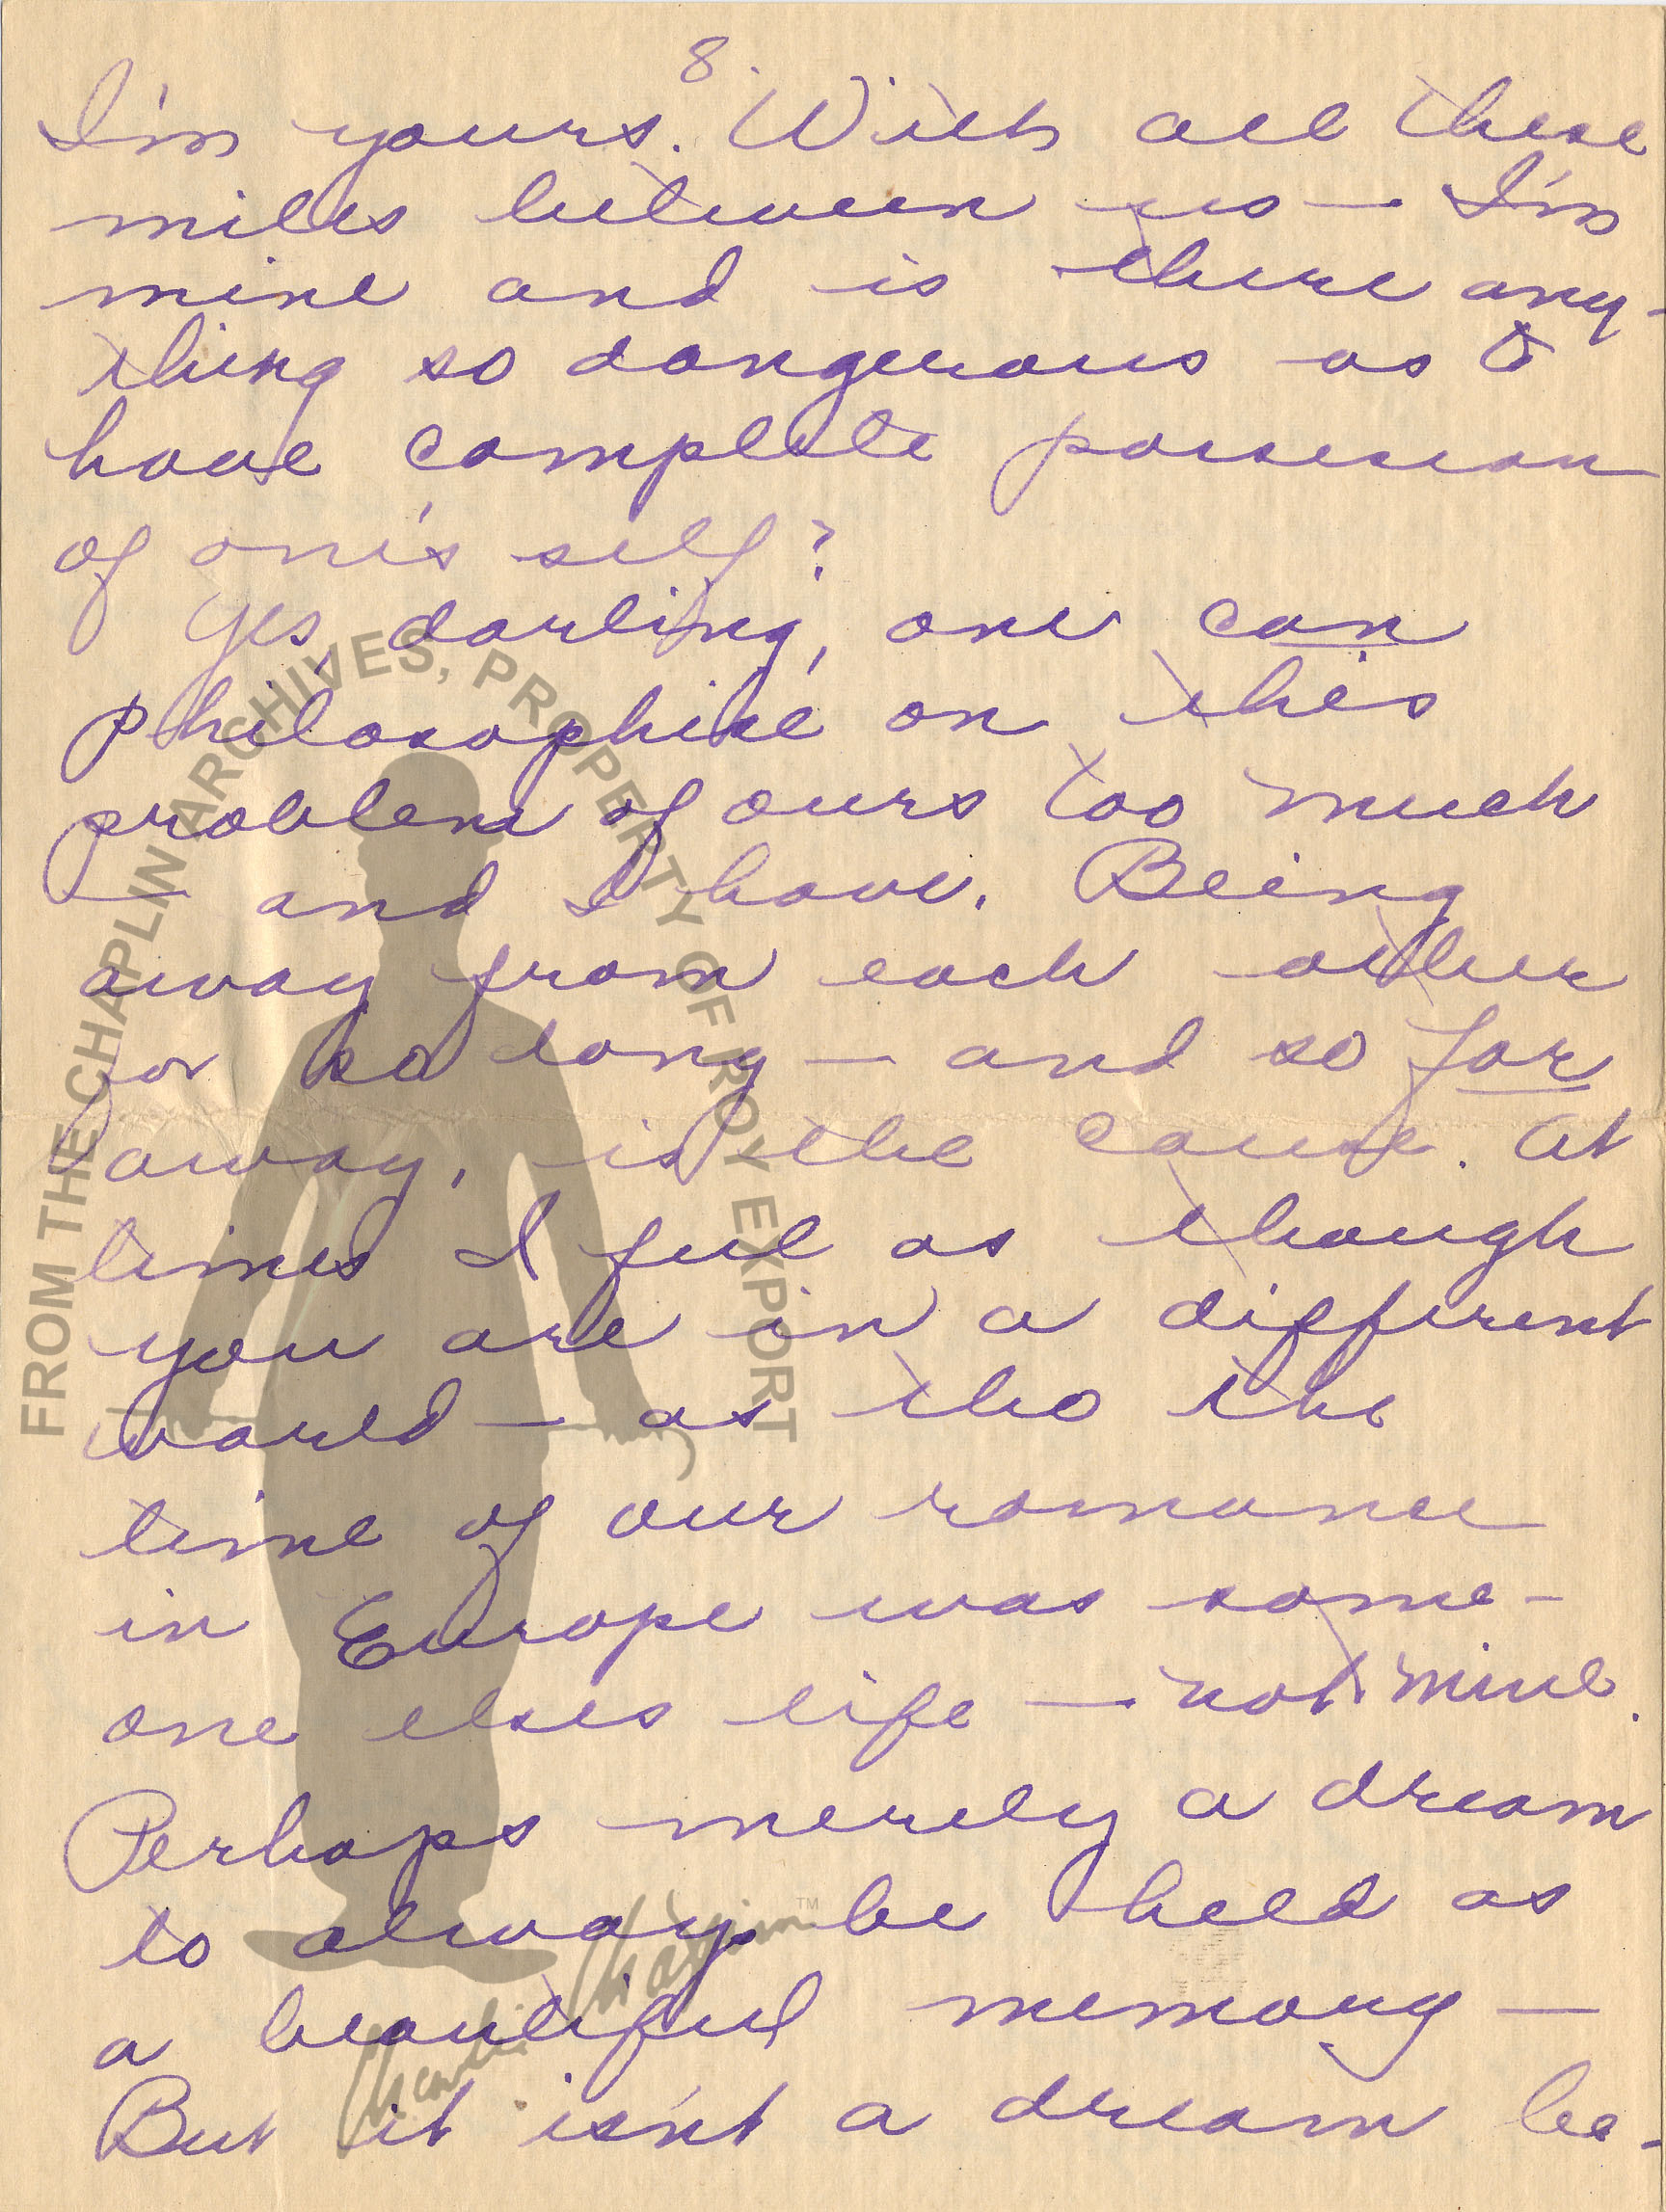 8.
I'm yours. With all these
miles between us — I'm
mine and is there any-
thing so dangerous as to
have complete possession
of one's self?
Yes, darling, one can
philosophize on this
problem of ours too much
— and I have. Being
away from each other
for so long — and so far
away, is the cause. At
times I feel as though
you are in a different
world — as tho the
time of our romance
in Europe was some-
one elses life — not mine.
Perhaps merely a dream
to always be held as
a beautiful memory —
But it isn't a dream be-
FROM THE CHAPLIN ARCHIVES, PROPERTY OF ROY EXPORT
Charlie Chaplin™